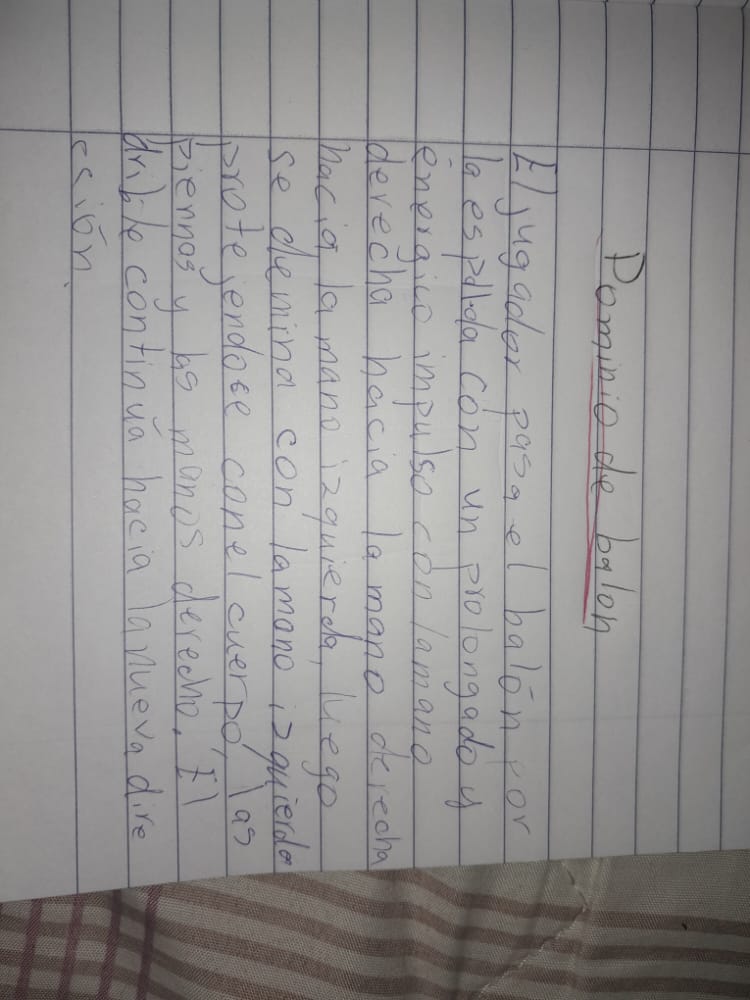 Dominio de balon
El jugador pasa el balón por
la espalda con un prolongado y
énergico impulso con la mano
derecha hacia la mano derecha
hacia la mano izquierda, luego
se demina con la mano izquierda
protejendose con el cuerpo, las
piernas y las manos derecho. El
drible continuá hacia la nueva dire
esión.